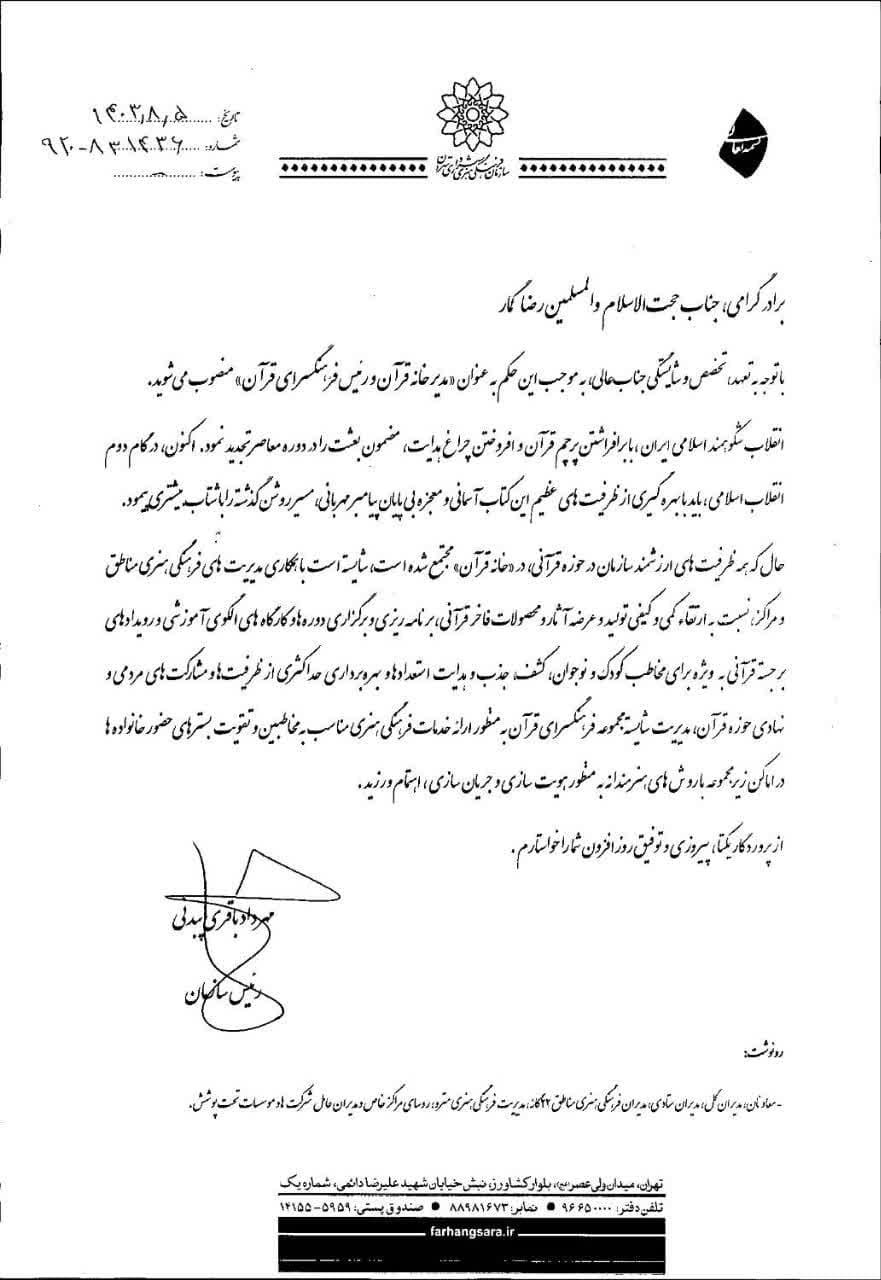 بسمه‌تعالی
سازمان فرهنگی هنری شهرداری تهران
تاریخ: ۱۴۰۳٫۸٫۵
شماره: ۹۲۰-۸۳۱۴۳۶
پیوست:
برادر گرامی، جناب حجت‌الاسلام والمسلمین رضا گمار
با توجه به تعهد، تخصص و شایستگی جناب‌عالی، به موجب این حکم به عنوان «مدیر خانه قرآن و رئیس فرهنگسرای قرآن» منصوب می‌شوید.
انقلاب شکوهمند اسلامی ایران، با برافراشتن پرچم قرآن و افروختن چراغ هدایت، مضمون بعثت را در دوره معاصر تجدید نمود. اکنون، در گام دوم
انقلاب اسلامی، باید با بهره گیری از ظرفیت های عظیم این کتاب آسمانی و معجزه بی پایان پیامبر مهربانی، مسیر روشن گذشته را با شتاب بیشتری پیمود.
حال که همه ظرفیت های ارزشمند سازمان در حوزه قرآنی، در «خانه قرآن» مجتمع شده است، شایسته است با همکاری مدیریت های فرهنگی هنری مناطق
و مراکز، نسبت به ارتقاء کمی و کیفی تولید و عرضه آثار و محصولات فاخر قرآنی، برنامه ریزی و برگزاری دوره ها و کارگاه های الگوی آموزشی و رویدادهای
برجسته قرآنی به ویژه برای مخاطب کودک و نوجوان، کشف، جذب و هدایت استعدادها و بهره برداری حداکثری از ظرفیت ها و مشارکت های مردمی و
نهادی حوزه قرآن، مدیریت شایسته مجموعه فرهنگسرای قرآن به منظور ارائه خدمات فرهنگی هنری مناسب به مخاطبین و تقویت بسترهای حضور خانواده ها
در اماکن زیرمجموعه با روش های هنرمندانه به منظور هویت سازی و جریان سازی، اهتمام ورزید.
از پروردگار یکتا، پیروزی و توفیق روزافزون شما را خواستارم.
مهرداد باقری پبدنی
رئیس سازمان
رونوشت:
- معاونان، مدیران کل، مدیران ستادی، مدیران فرهنگی هنری مناطق ۲۲گانه، مدیریت فرهنگی هنری مترو، روسای مراکز خاص و مدیران عامل شرکت ها و موسسات تحت پوشش.
تهران، میدان ولی عصر(عج)، بلوار کشاورز، نبش خیابان شهید علیرضا دائمی، شماره یک
تلفن دفتر: ۹۶۶۵۰۰۰۰ ● نمابر: ۸۸۹۸۱۶۷۳ ● صندوق پستی: ۵۹۵۹-۱۴۱۵۵
farhangsara.ir